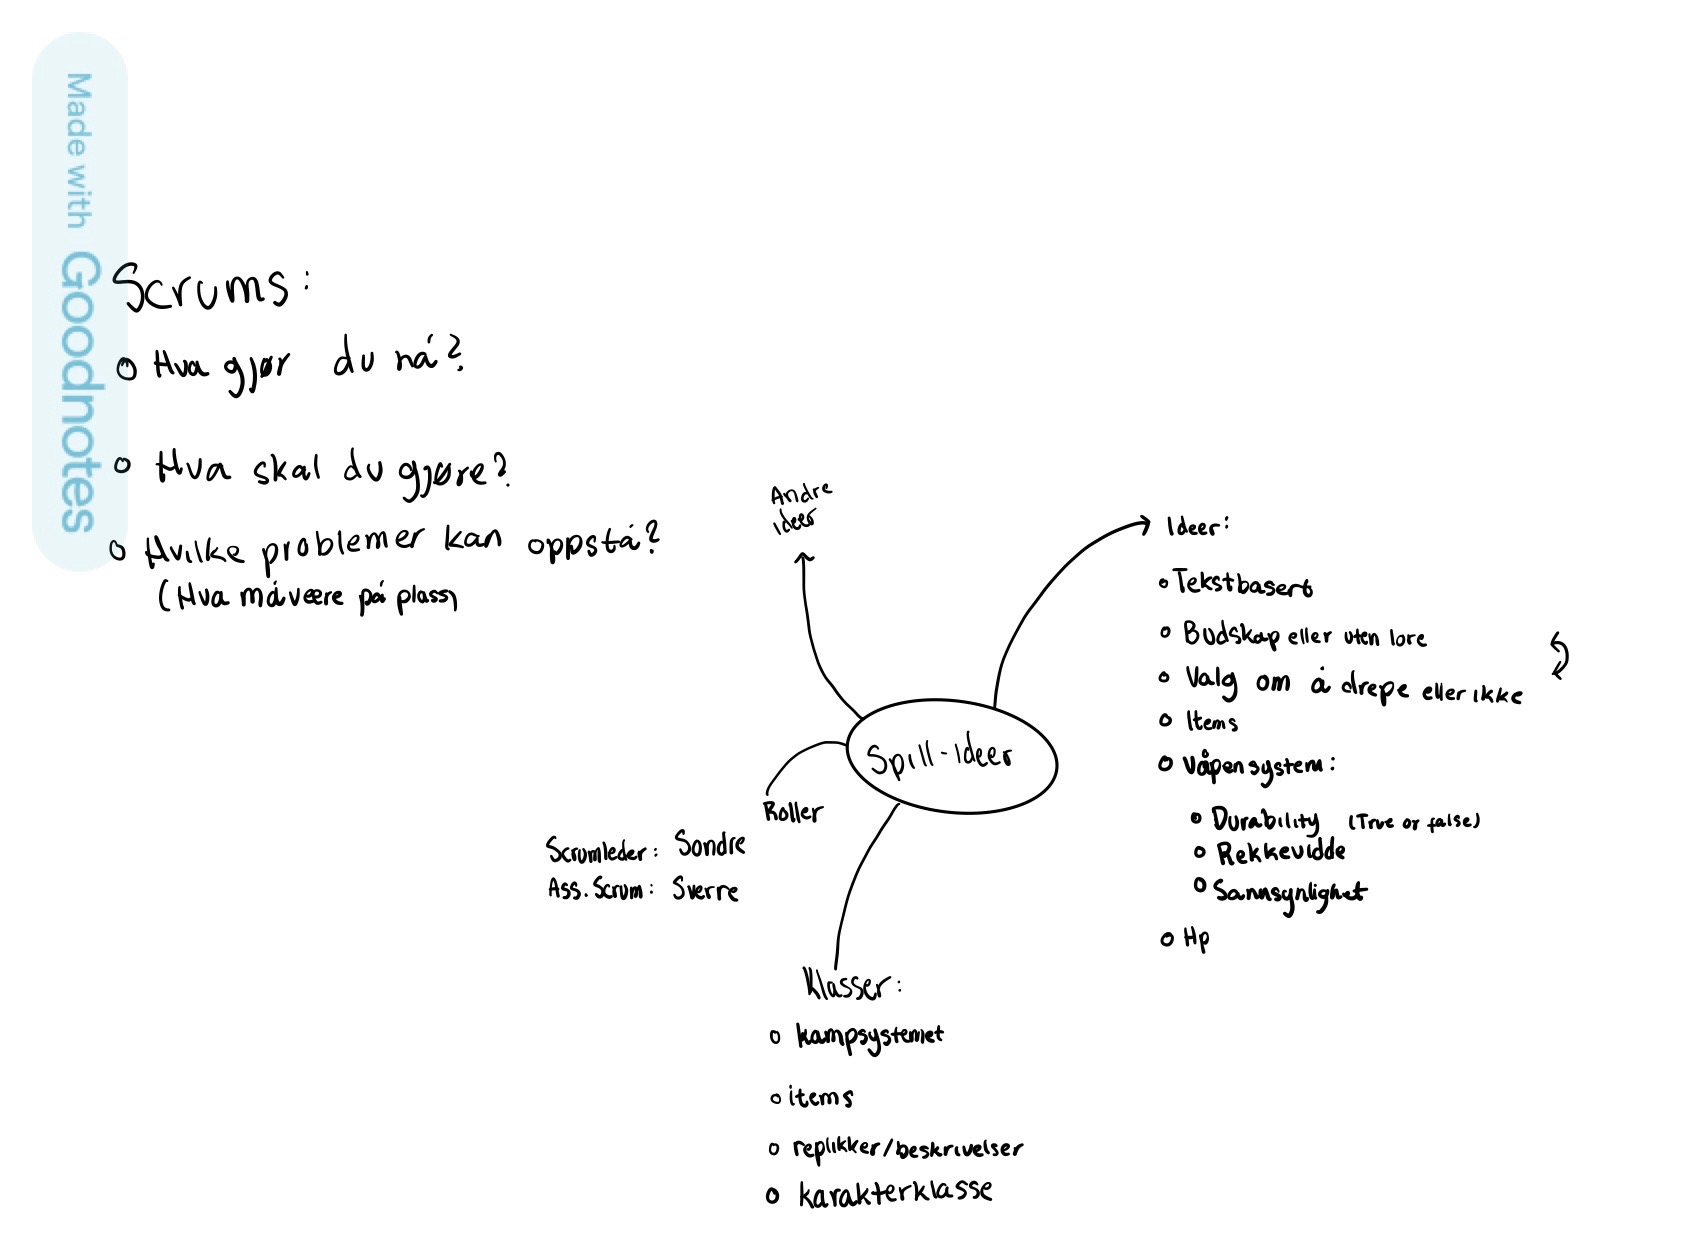 Made with Goodnotes
Scrums:
Hva gjør du nå?
Hva skal du gjøre?
Hvilke problemer kan oppstå?
(Hva må være på plass)
Andre
ideer
Ideer:
Tekstbasert
Budskap eller uten lore
Valg om å drepe eller ikke
Items
Våpensystem:
Durability (True or false)
Rekkevidde
Sannsynlighet
Hp
Spill-Ideer
Roller
Scrumleder: Sondre
Ass. Scrum: Sverre
Klasser:
kampsystemet
items
replikker/beskrivelser
karakterklasse